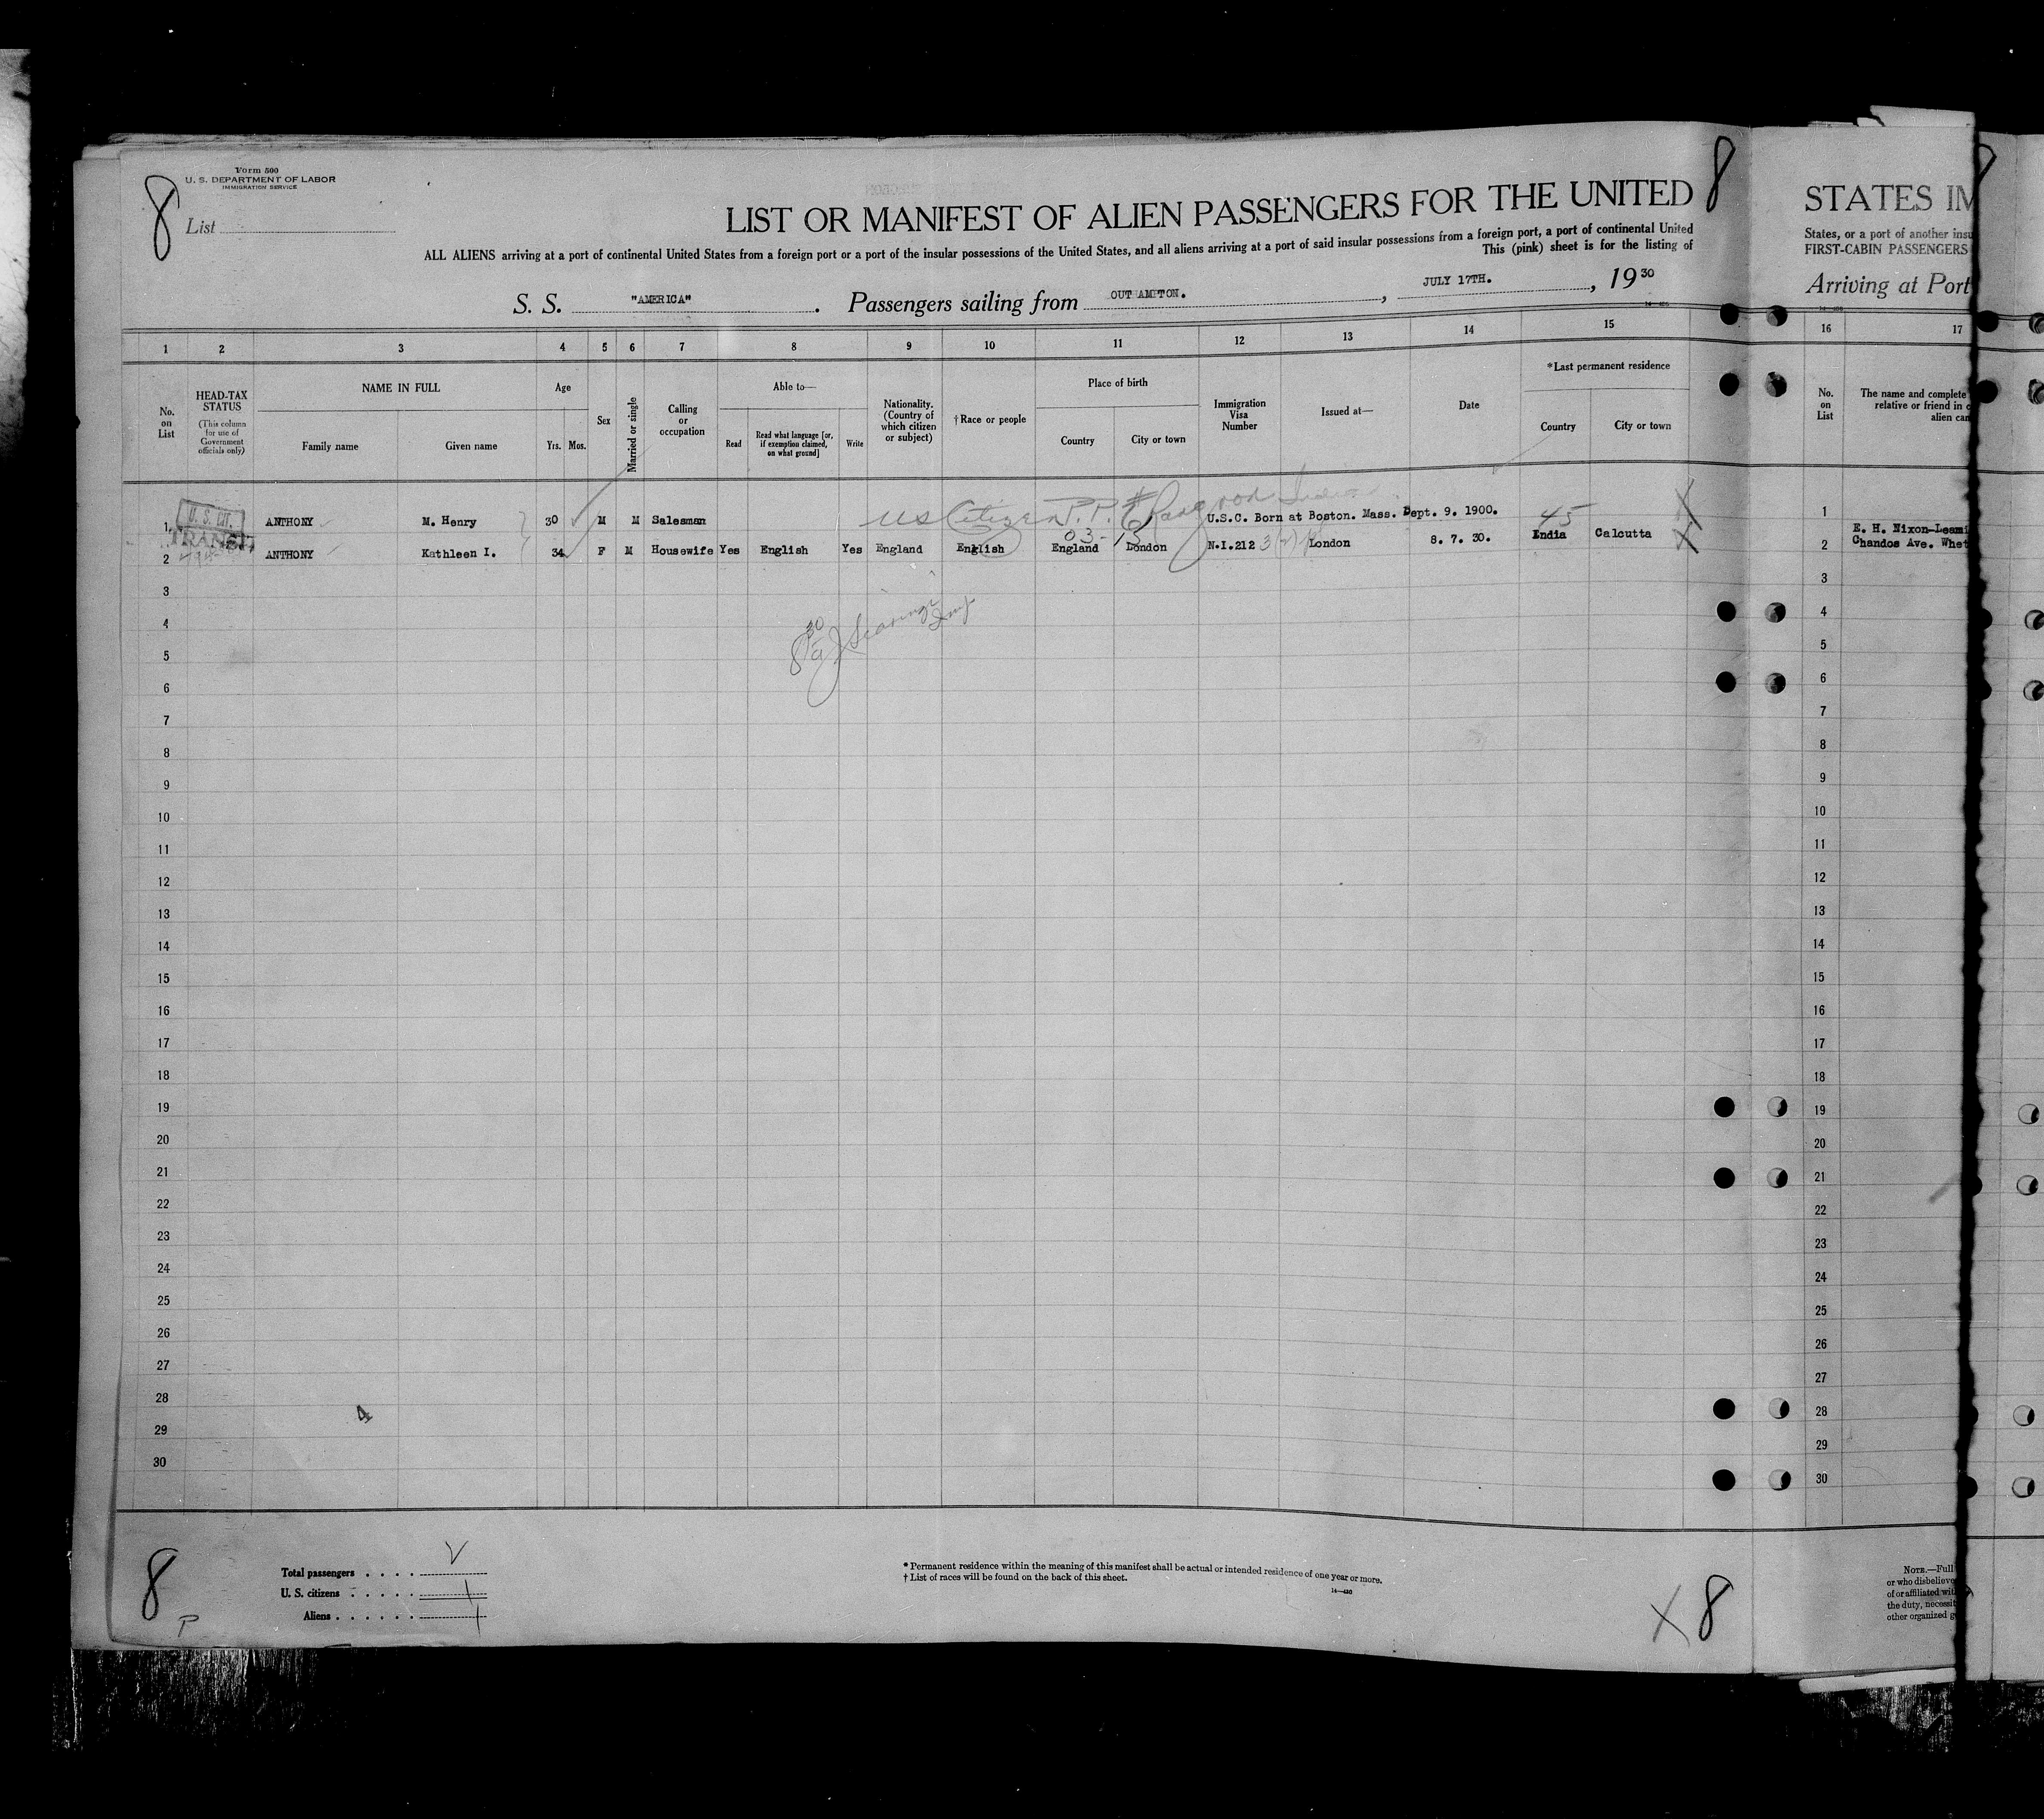 8
Form 500
U. S. DEPARTMENT OF LABOR
IMMIGRATION SERVICE
List
8
LIST OR MANIFEST OF ALIEN PASSENGERS FOR THE UNITED
ALL ALIENS arriving at a port of continental United States from a foreign port or a port of the insular possessions of the United States, and all aliens arriving at a port of said insular possessions from a foreign port, a port of continental United
This (pink) sheet is for the listing of
S. S. "AMERICA". Passengers sailing from OUT AMPTON. , JULY 17TH. , 1930
STATES IM
States, or a port of another insu
FIRST-CABIN PASSENGERS
Arriving at Port
1 2 3 4 5 6 7 8 9 10 11 12 13 14 15 16 17
No. on List
HEAD-TAX STATUS
(This column for use of Government officials only)
NAME IN FULL
Family name
Given name
Age
Yrs. Mos.
Sex
Married or single
Calling or occupation
Able to—
Read
Read what language [or, if exemption claimed, on what ground]
Write
Nationality. (Country of which citizen or subject)
†Race or people
Place of birth
Country
City or town
Immigration Visa Number
Issued at—
Date
*Last permanent residence
Country
City or town
No. on List
The name and complete
relative or friend in c
alien can
US Citizen P.P. #
1 U. S. CIT. ANTHONY M. Henry 30 M M Salesman U.S.C. Born at Boston. Mass. Sept. 9. 1900. 45
TRANSIT
03-13
2 ANTHONY Kathleen I. 34 F M Housewife Yes English Yes England English England London N.I.212 London 8. 7. 30. India Calcutta
1
E. H. Nixon-Leami
2 Chandos Ave. Whet
3 3
4 4
5 5
6 6
7 7
8 8
9 9
10 10
11 11
12 12
13 13
14 14
15 15
16 16
17 17
18 18
19 19
20 20
21 21
22 22
23 23
24 24
25 25
26 26
27 27
28 28
4
29 29
30 30
8
P
Total passengers . . . .
U. S. citizens . . . . . 1
Aliens . . . . . . 1
* Permanent residence within the meaning of this manifest shall be actual or intended residence of one year or more.
† List of races will be found on the back of this sheet.
14—430
X 8
NOTE.—Full
or who disbelieve
of or affiliated wit
the duty, necessit
other organized g